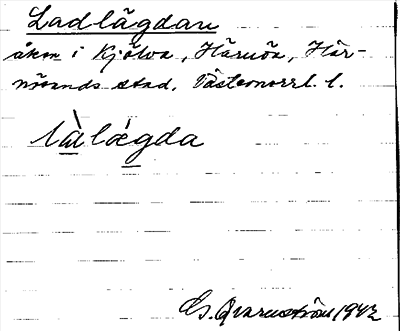 Ladlägdan
åker i Kjölva, Härnön, Här-
nösands stad, Västernorrl. l.
làlægda
G. Qvarnström 1942